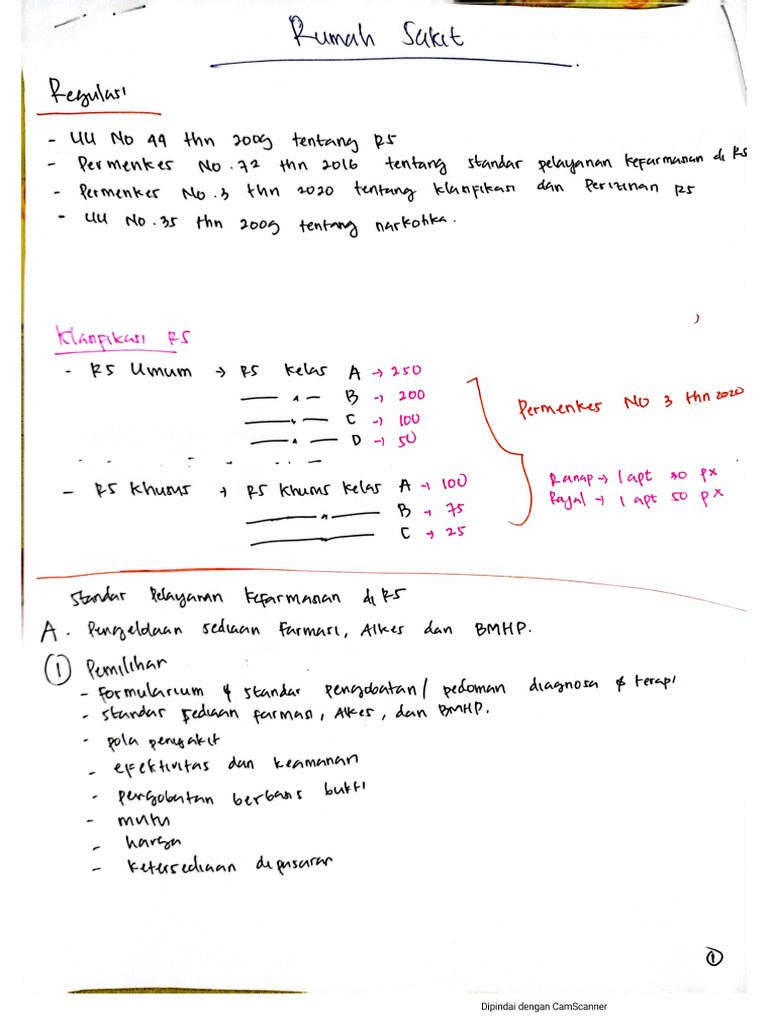 Rumah Sakit
Regulasi
- UU No 44 thn 2009 tentang RS
- Permenkes No. 72 thn 2016 tentang standar pelayanan kefarmasian di RS
- Permenkes No. 3 thn 2020 tentang klasifikasi dan Perizinan RS
- UU No. 35 thn 2009 tentang narkotika.
Klasifikasi RS
- RS Umum → RS Kelas A → 250
— " — B → 200
— " — C → 100
— " — D → 50
Permenkes No 3 thn 2020
- RS Khusus → RS Khusus Kelas A → 100
— " — B → 75
— " — C → 25
Ranap → 1 apt 30 px
Rajal → 1 apt 50 px
Standar Pelayanan Kefarmasian di RS
A. Pengelolaan sediaan farmasi, Alkes dan BMHP.
① Pemilihan
- formularium & standar pengobatan / pedoman diagnosa & terapi
- standar sediaan farmasi, Alkes, dan BMHP.
- pola penyakit
- efektivitas dan keamanan
- pengobatan berbasis bukti
- mutu
- harga
- ketersediaan dipasaran
①
Dipindai dengan CamScanner